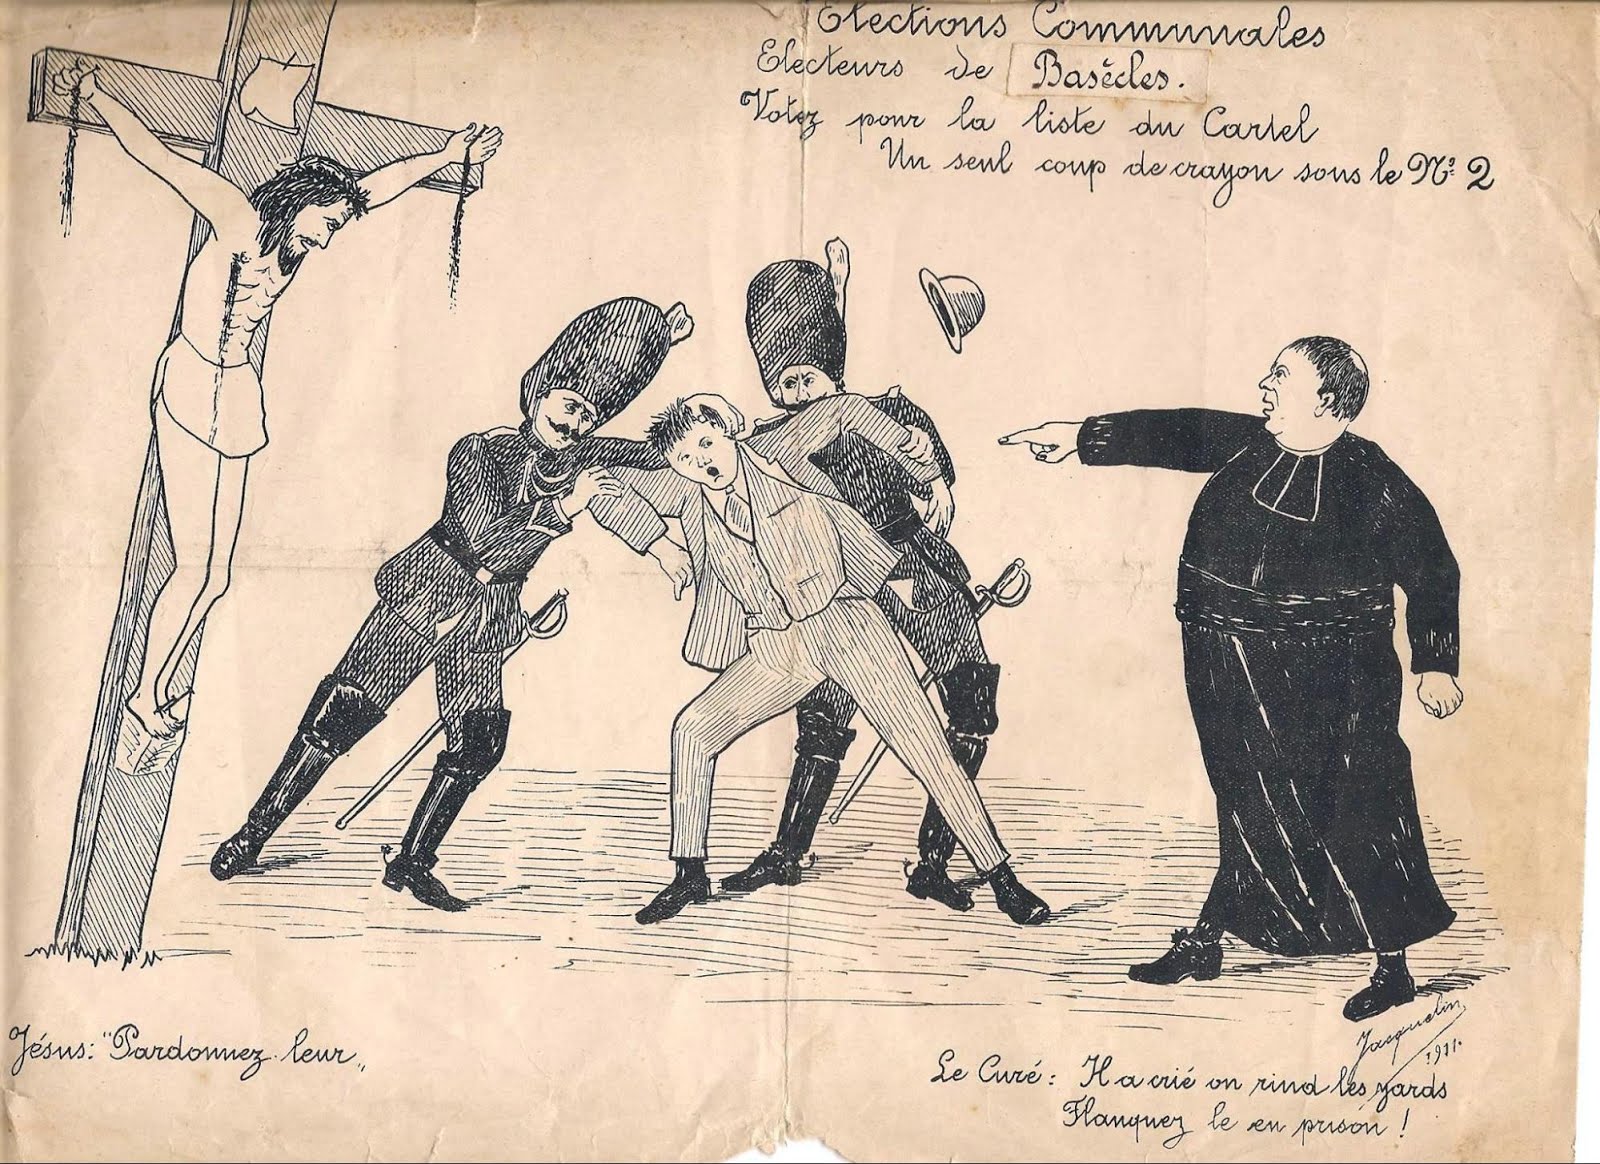 Elections Communales
Electeurs de Basècles.
Votez pour la liste du Cartel
Un seul coup de crayon sous le Nº 2
Jésus: "Pardonnez leur„
Jacquelin
1911.
Le Curé: Il a crié on rind les yards
Flanquez le en prison!